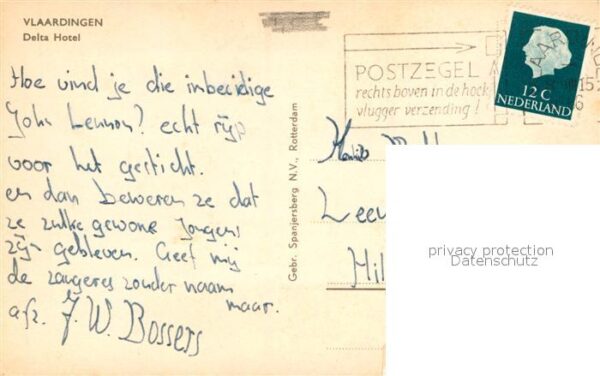 VLAARDINGEN
Delta Hotel
Hoe vind je die inbecidige
John Lennon? echt rijp
voor het gesticht.
en dan beweren ze dat
ze zulke gewone jongens
zijn gebleven. Geef mij
de zangeres zonder naam
maar.
afz. J. W. Bossers
Gebr. Spanjersberg N.V., Rotterdam
POSTZEGEL
rechts boven in de hoek
vlugger verzending!
12 C
NEDERLAND
15
6
Leeu
Hil
privacy protection
Datenschutz